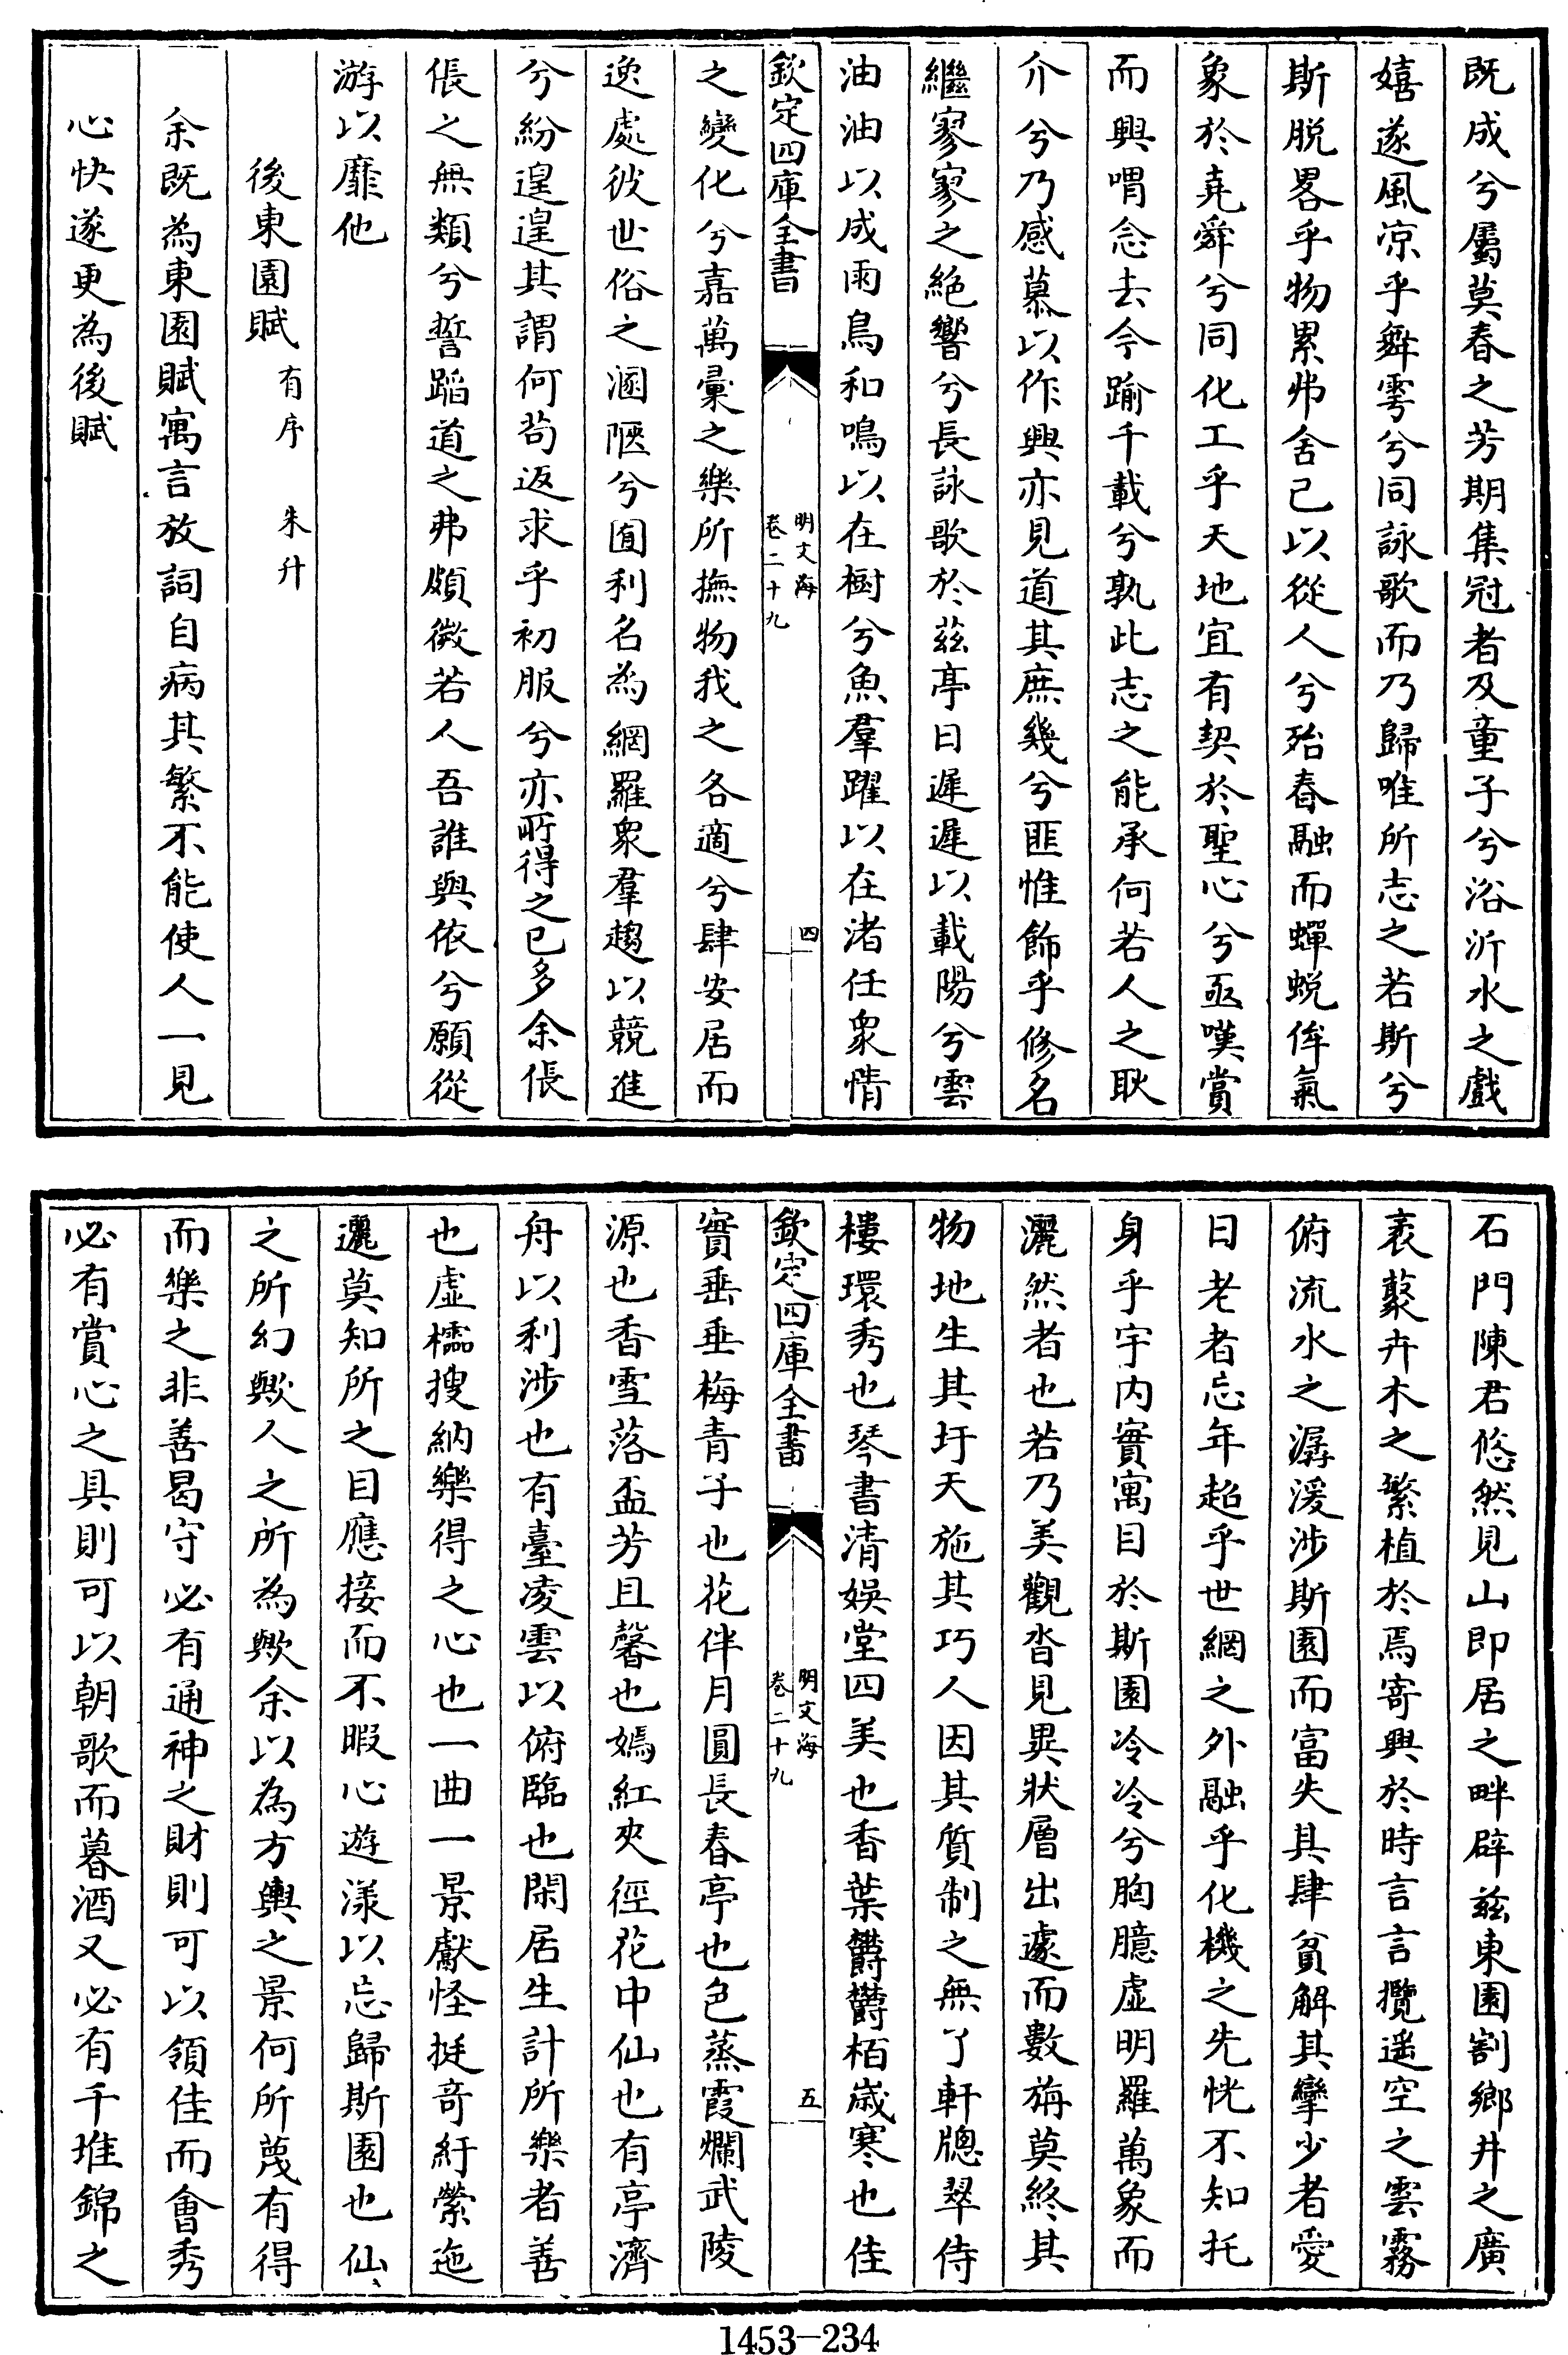 既成兮屬莫春之芳期集冠者及童子兮浴沂水之戲
嬉遂風凉乎舞雩兮同詠歌而乃歸唯所志之若斯兮
斯脱畧乎物累弗舍己以從人兮殆春融而蟬蜕侔氣
象於堯舜兮同化工乎天地宜有契於聖心兮亟嘆賞
而興喟念去今踰千載兮孰此志之能承何若人之耿
介兮乃感慕以作興亦見道其庶幾兮匪惟飾乎修名
繼寥寥之絶響兮長詠歌於兹亭日遲遲以載陽兮雲
油油以成雨鳥和鳴以在樹兮魚羣躍以在渚任衆情
欽定四庫全書
明文海
卷二十九
四
之變化兮嘉萬彚之樂所撫物我之各適兮肆安居而
逸處彼世俗之溷陋兮囿利名為網羅衆羣趨以競進
兮紛遑遑其謂何茍返求乎初服兮亦所得之已多余倀
倀之無類兮誓蹈道之弗頗微若人吾誰與依兮願從
游以靡他
後東園賦有序 朱升
余既為東園賦寓言放詞自病其繁不能使人一見
心快遂更為後賦
石門陳君悠然見山即居之畔辟兹東園割鄉井之廣
袤藂卉木之繁植於焉寄興於時言言攬遥空之雲霧
俯流水之潺湲涉斯園而富失其肆貧解其攣少者愛
日老者忘年超乎世網之外融乎化機之先恍不知托
身乎宇内實寓目於斯園冷冷兮胸臆虚明羅萬象而
灑然者也若乃美觀沓見異狀層出遽而數旃莫終其
物地生其圩天施其巧人因其質制之無了軒牕翠侍
樓環秀也琴書清娛堂四美也香葉欝欝栢歲寒也佳
欽定四庫全書
明文海
卷二十九
五
實垂垂梅青子也花伴月圓長春亭也色蒸霞爛武陵
源也香雪落盃芳且馨也嫣紅夾徑花中仙也有亭濟
舟以利涉也有臺凌雲以俯臨也閑居生計所樂者善
也虚櫺搜納樂得之心也一曲一景獻怪挺竒紆縈迤
邐莫知所之目應接而不暇心遊漾以忘歸斯園也仙
之所幻歟人之所為歟余以為方輿之景何所蔑有得
而樂之非善曷守必有通神之財則可以領佳而會秀
必有賞心之具則可以朝歌而暮酒又必有千堆錦之
1453—234